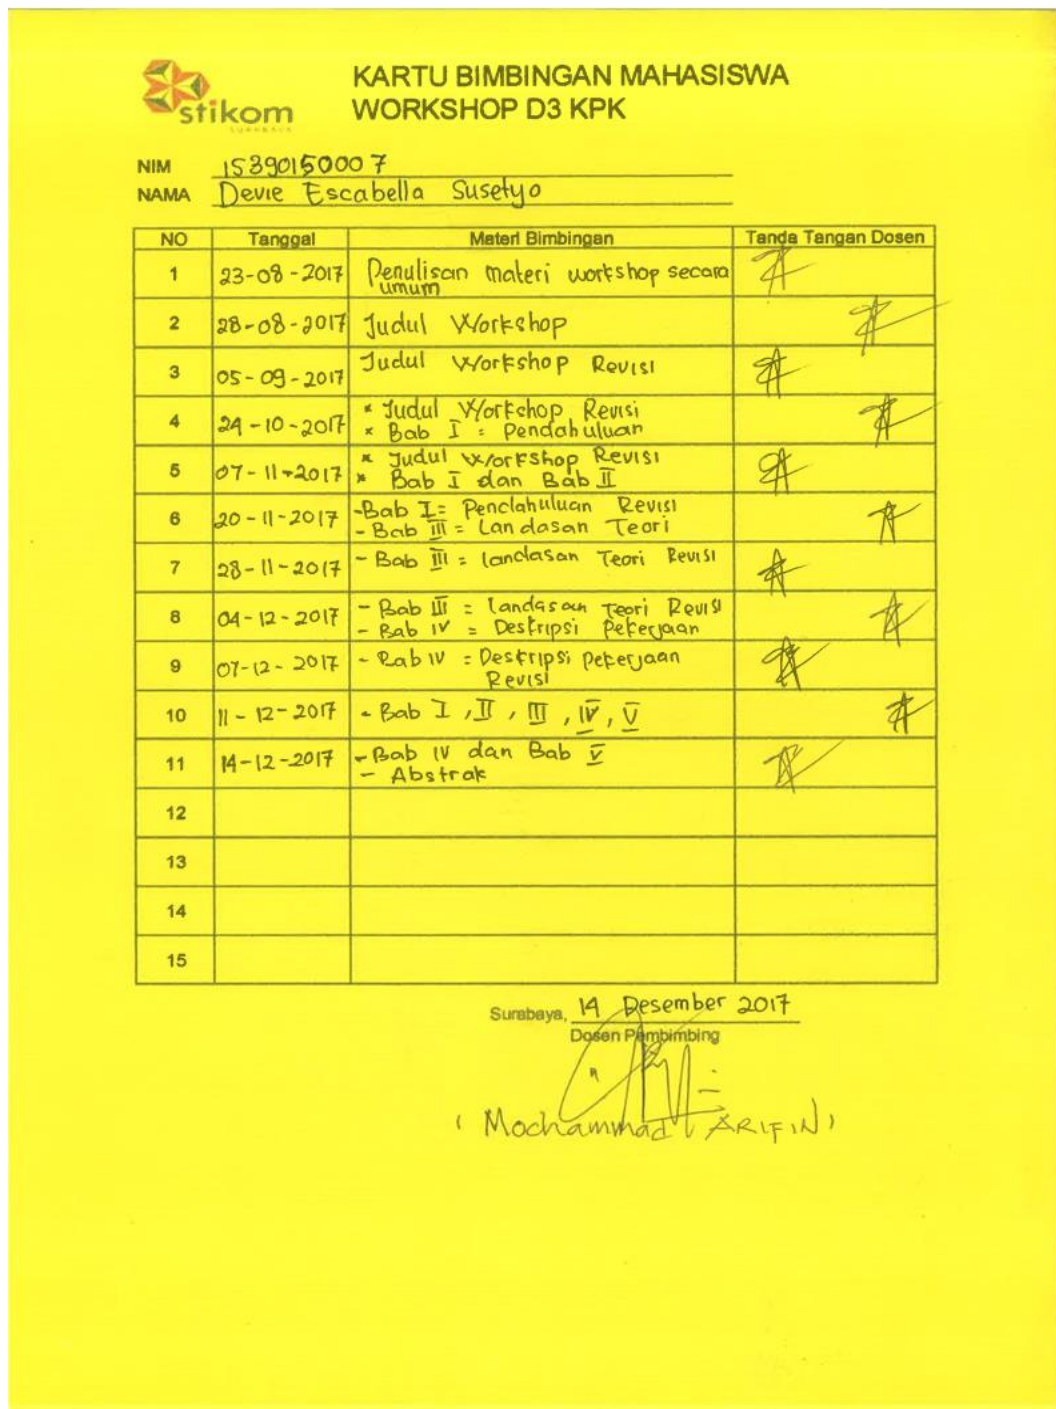 KARTU BIMBINGAN MAHASISWA
WORKSHOP D3 KPK
stikom
SURABAYA
NIM 15390150007
NAMA Devie Escabella Susetyo
NO Tanggal Materi Bimbingan Tanda Tangan Dosen
1 23-08-2017 Penulisan materi workshop secara
umum
2 28-08-2017 Judul Workshop
3 05-09-2017 Judul Workshop Revisi
4 24-10-2017 * Judul Workshop Revisi
* Bab I = Pendahuluan
5 07-11-2017 * Judul Workshop Revisi
* Bab I dan Bab II
6 20-11-2017 - Bab I = Pendahuluan Revisi
- Bab III = Landasan Teori
7 28-11-2017 - Bab III = landasan Teori Revisi
8 04-12-2017 - Bab III = landasan Teori Revisi
- Bab IV = Deskripsi Pekerjaan
9 07-12-2017 - Bab IV = Deskripsi pekerjaan
Revisi
10 11-12-2017 - Bab I, II, III, IV, V
11 14-12-2017 - Bab IV dan Bab V
- Abstrak
12
13
14
15
Surabaya, 14 Desember 2017
Dosen Pembimbing
( Mochammad ARIFIN )